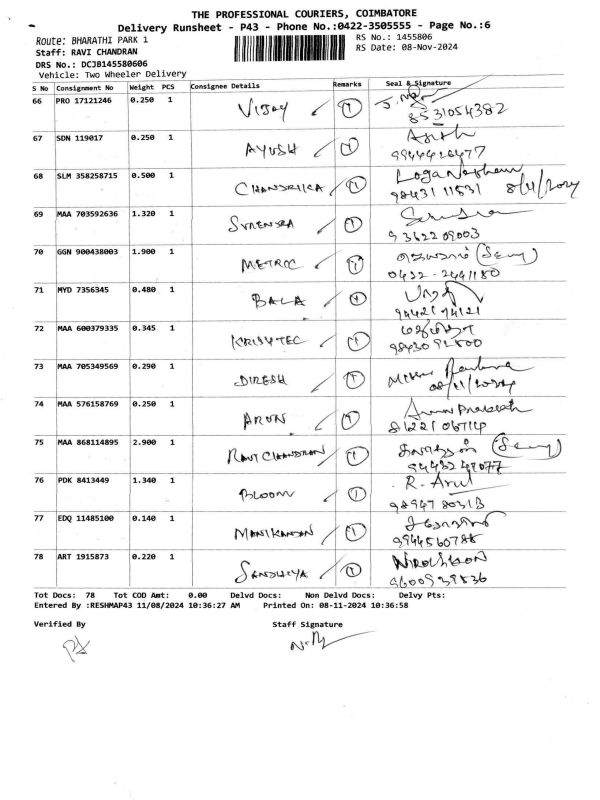 THE PROFESSIONAL COURIERS, COIMBATORE
Delivery Runsheet - P43 - Phone No.:0422-3505555 - Page No.:6
Route: BHARATHI PARK 1
RS No.: 1455806
Staff: RAVI CHANDRAN
RS Date: 08-Nov-2024
DRS No.: DCJB145580606
Vehicle: Two Wheeler Delivery
S No Consignment No Weight PCS Consignee Details Remarks Seal & Signature
66 PRO 17121246 0.250 1 VIJAY 1
8531054382
67 SDN 119017 0.250 1 AYUSH 1
9944426477
68 SLM 358258715 0.500 1 CHANDRIKA 1
98431 11531 8/11/2024
69 MAA 703592636 1.320 1 SURENDRA 1
9362209003
70 GGN 900438003 1.900 1 METROC 1
0422-2441180
71 MYD 7356345 0.480 1 BALA 1
94421 94121
72 MAA 600379335 0.345 1 KRISYTEC 1
98430 91500
73 MAA 705349569 0.290 1 DIRESH 1
08/11/2024
74 MAA 576158769 0.250 1 ARUN 1
Arun Prakash
81221 06714
75 MAA 868114895 2.900 1 RAVI CHANDRAN 1
94432 49077
76 PDK 8413449 1.340 1 BLOOM 1
R. Arul
98947 80313
77 EDQ 11485100 0.140 1 MANIKANDAN 1
9944560788
78 ART 1915873 0.220 1 SANDHIYA 1
9600939836
Tot Docs: 78 Tot COD Amt: 0.00 Delvd Docs: Non Delvd Docs: Delvy Pts:
Entered By :RESHMAP43 11/08/2024 10:36:27 AM Printed On: 08-11-2024 10:36:58
Verified By Staff Signature